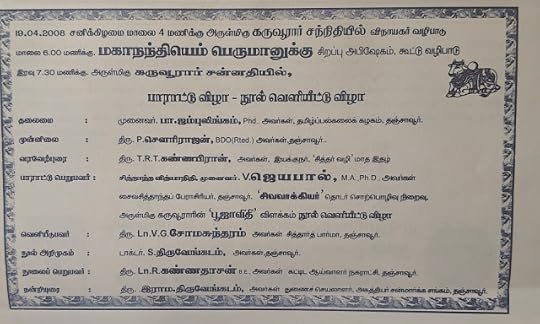 19.04.2008 சனிக்கிழமை மாலை 4 மணிக்கு அருள்மிகு கருவூரார் சந்நிதியில் விநாயகர் வழிபாடு
மாலை 6.00 மணிக்கு. மகாநந்தியெம் பெருமானுக்கு சிறப்பு அபிஷேகம், கூட்டு வழிபாடு
இரவு 7.30 மணிக்கு, அருள்மிகு கருவூரார் சன்னதியில்,
பாராட்டு விழா - நூல் வெளியீட்டு விழா
தலைமை : முனைவர். பா.ஜம்புலிங்கம், Phd. அவர்கள், தமிழ்ப்பல்கலைக் கழகம், தஞ்சாவூர்.
முன்னிலை : திரு. P.சௌரிராஜன், BDO(Rted.) அவர்கள்,தஞ்சாவூர்.
வரவேற்புரை : திரு. T.R.T.கண்ணபிரான், அவர்கள், இயக்குநர், 'சித்தர் வழி' மாத இதழ்
பாராட்டு பெறுபவர் : சித்தாந்த வித்யாநிதி, முனைவர். V.ஜெயபால், M.A.,Ph.D., அவர்கள்
சைவசித்தாந்தப் பேராசிரியர், தஞ்சாவூர். 'சிவவாக்கியர்' தொடர் சொற்பொழிவு நிறைவு,
அருள்மிகு கருவூராரின் 'பூஜாவிதி' விளக்கம் நூல் வெளியீட்டு விழா
வெளியிடுபவர் : திரு. Ln.V.G.சோமசுந்தரம் அவர்கள் சித்தார்த் பார்மா, தஞ்சாவூர்.
நூல் அறிமுகம் : டாக்டர். S.திருவேங்கடம், அவர்கள்,தஞ்சாவூர்.
நூலைப் பெறுபவர் : திரு. Ln.R.கண்ணதாசன் அவர்கள் கட்டிட ஆய்வாளர் நகராட்சி, தஞ்சாவூர்.
நன்றியுரை : திரு. இராம.திருவேங்கடம், அவர்கள் துணைச் செயலாளர், அகத்தியர் சன்மார்க்க சங்கம், தஞ்சாவூர்.